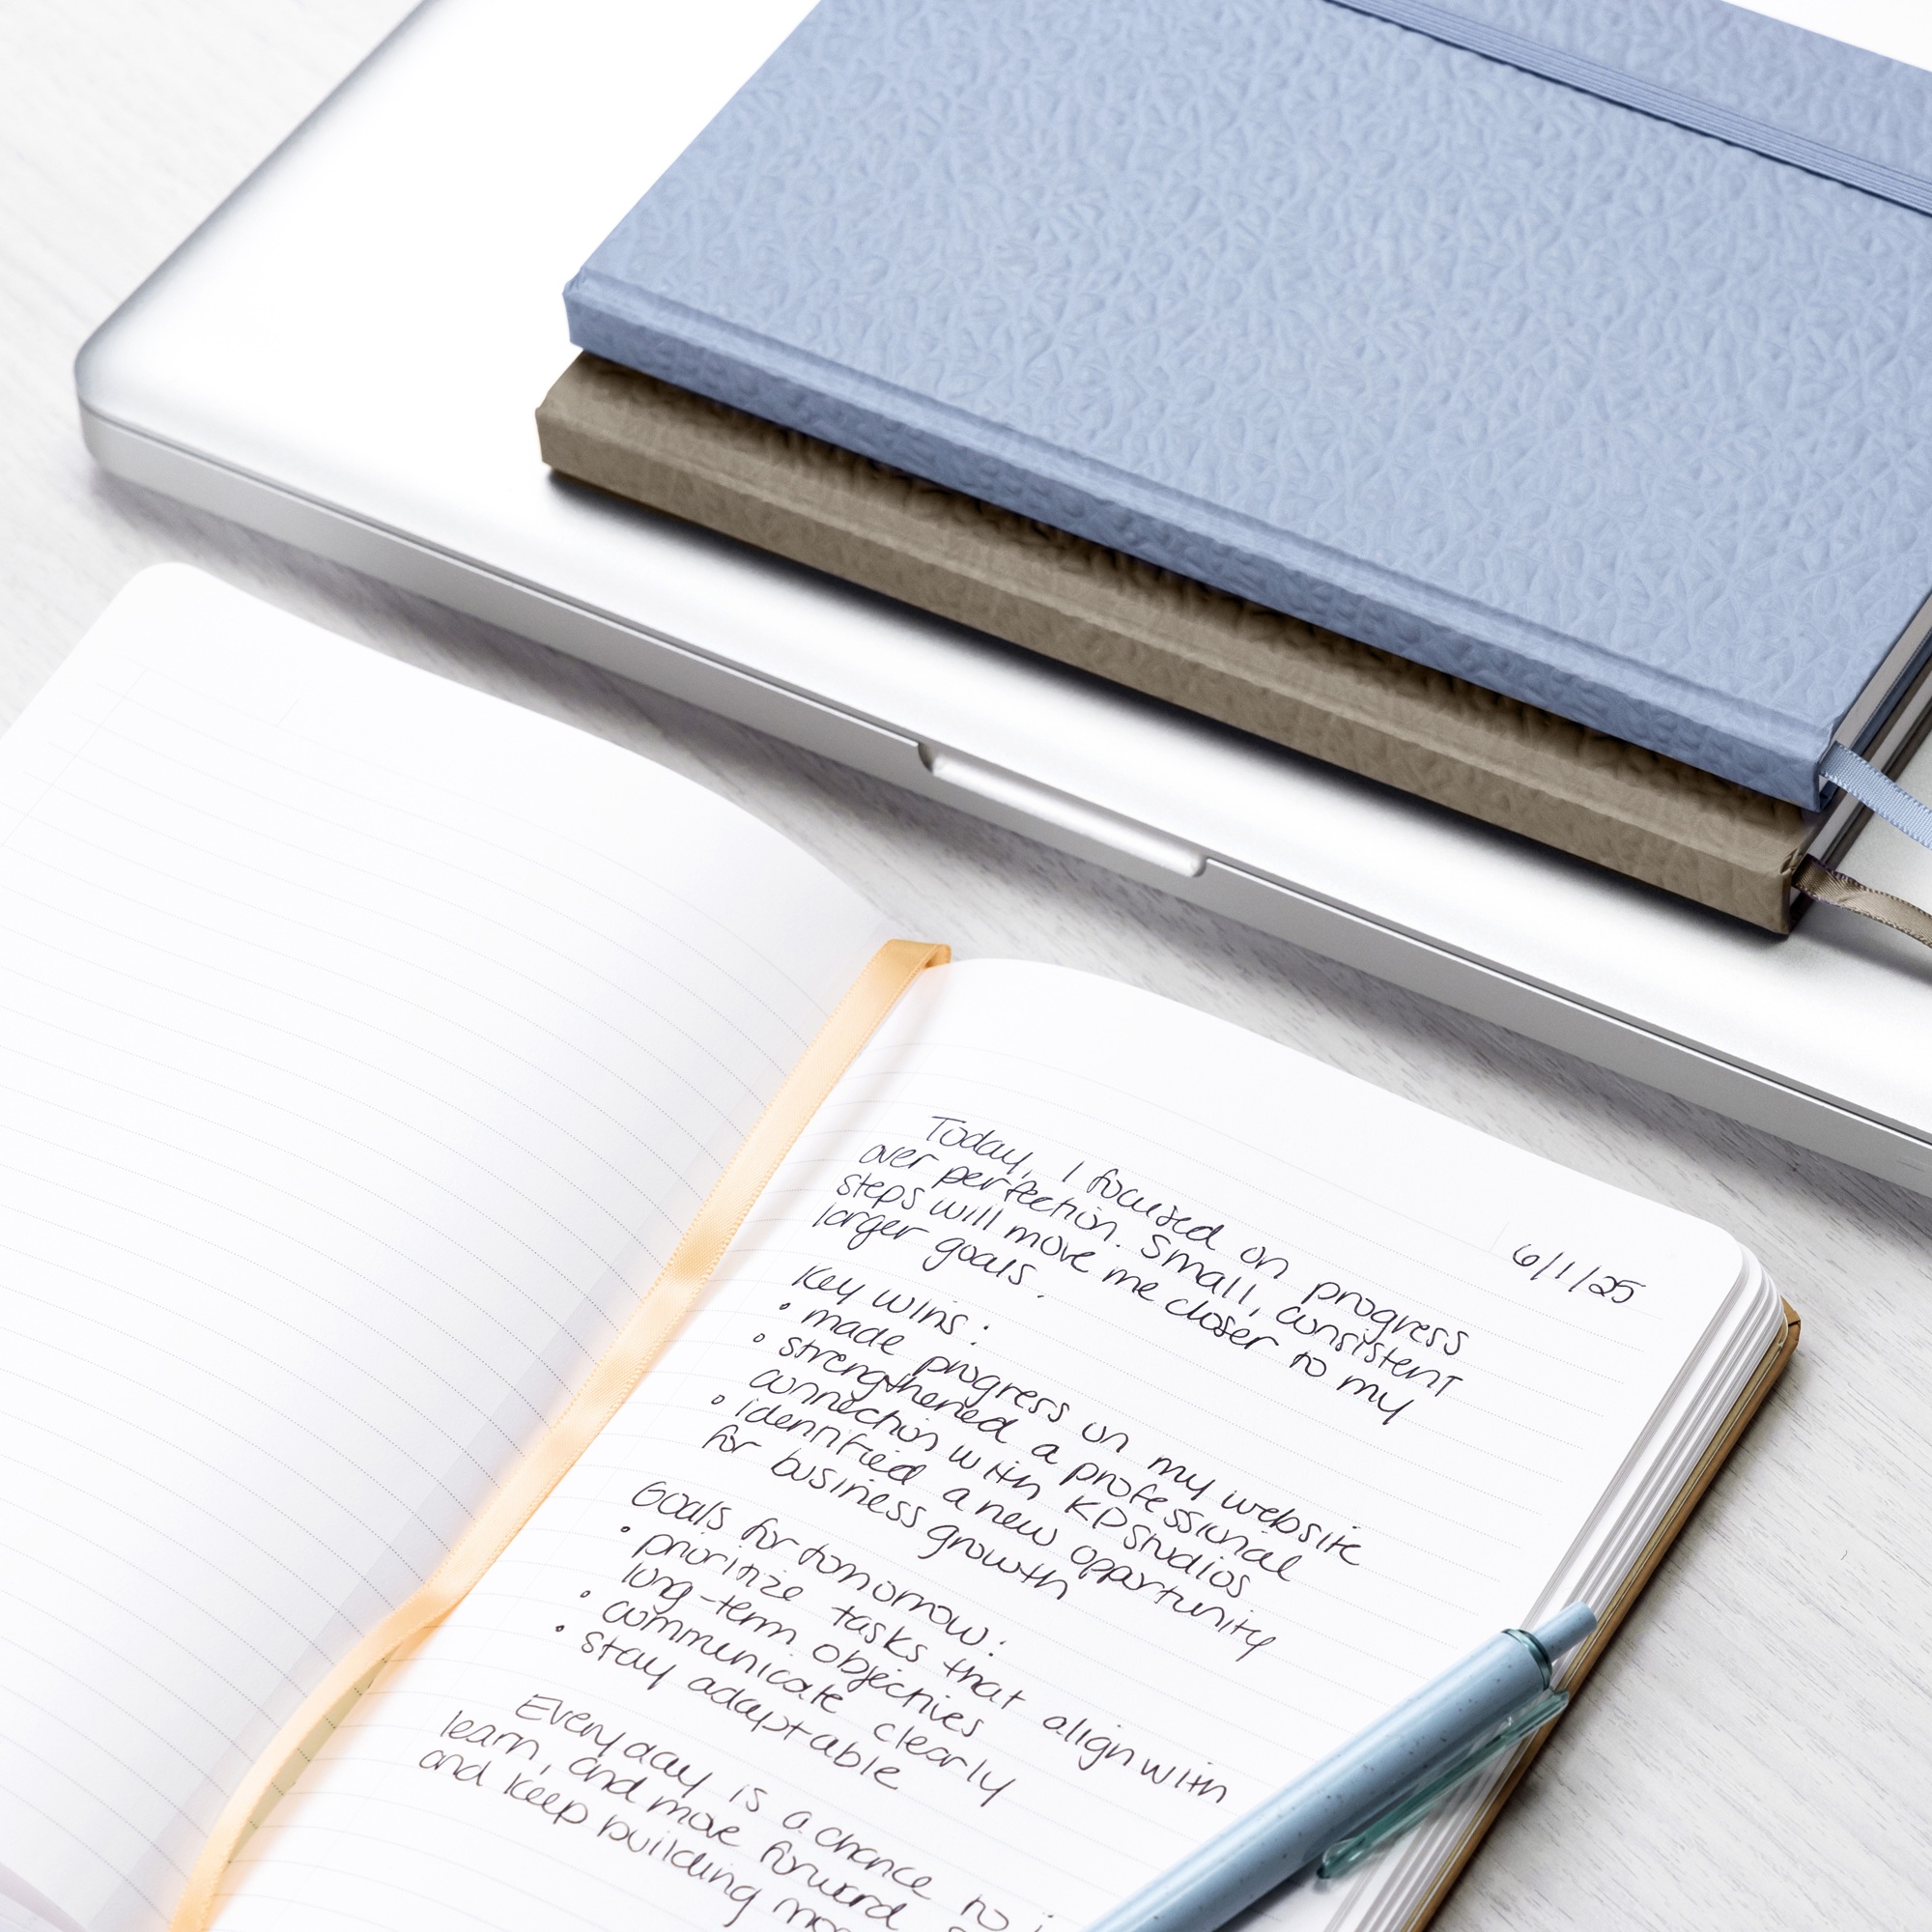 6/1/25
Today, I focused on progress
over perfection. Small, consistent
steps will move me closer to my
larger goals.
Key wins:
• made progress on my website
• strengthened a professional
connection with KP Studios
• identified a new opportunity
for business growth
Goals for tomorrow:
• prioritize tasks that align with
long-term objectives
• communicate clearly
• stay adaptable
Every day is a chance to
learn, and move forward
and keep building